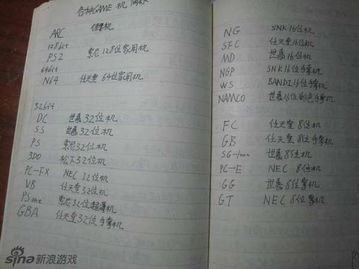 各种GAME机 简称
ARC 街机
128bit
PS2 索尼128位家用机
64bit
N64 任天堂64位家用机
32bit
DC 世嘉32位机
SS 世嘉32位机
PS 索尼32位机
3DO 松下32位机
PC-FX NEC 32位机
VB 任天堂32位机
PSone 索尼32位超薄机
GBA 任天堂32位手掌机
NG SNK16位机
SFC 任天堂16位机
MD 世嘉16位机
NGP SNK16位手掌机
WS BANDI16位手掌机
NAMCO 世嘉16位彩色手掌机
FC 任天堂8位机
GB 任天堂8位手掌机
SG-1000 世嘉8位机
PC-E NEC 8位机
GG 世嘉8位掌机
GT NEC 8位掌机
sina新浪游戏